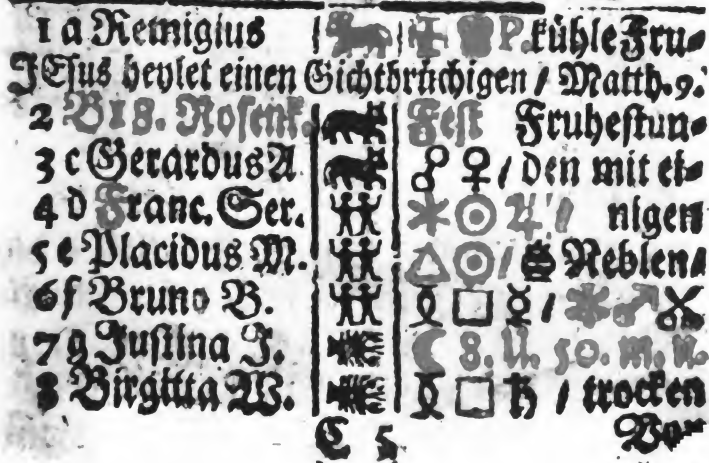 1 a Remigius P. kühle Fru⸗
JEsus heylet einen Gichtbrüchigen / Matth. 9.
2 B 18. Rosenk. Fest Fruhestun⸗
3 c Gerardus A ☍ ♀ / den mit ei⸗
4 d Franc. Ser. ⚹ ☉ ♃ / nigen
5 e Placidus M. △ ☉ / Neblen⸗
6 f Bruno B. □ ☿ / ⚹ ♂
7 g Justina J. ☾ 8. U. 50. m. n.
8 Birgitta W. □ ♄ / trocken
C 5 Vor⸗